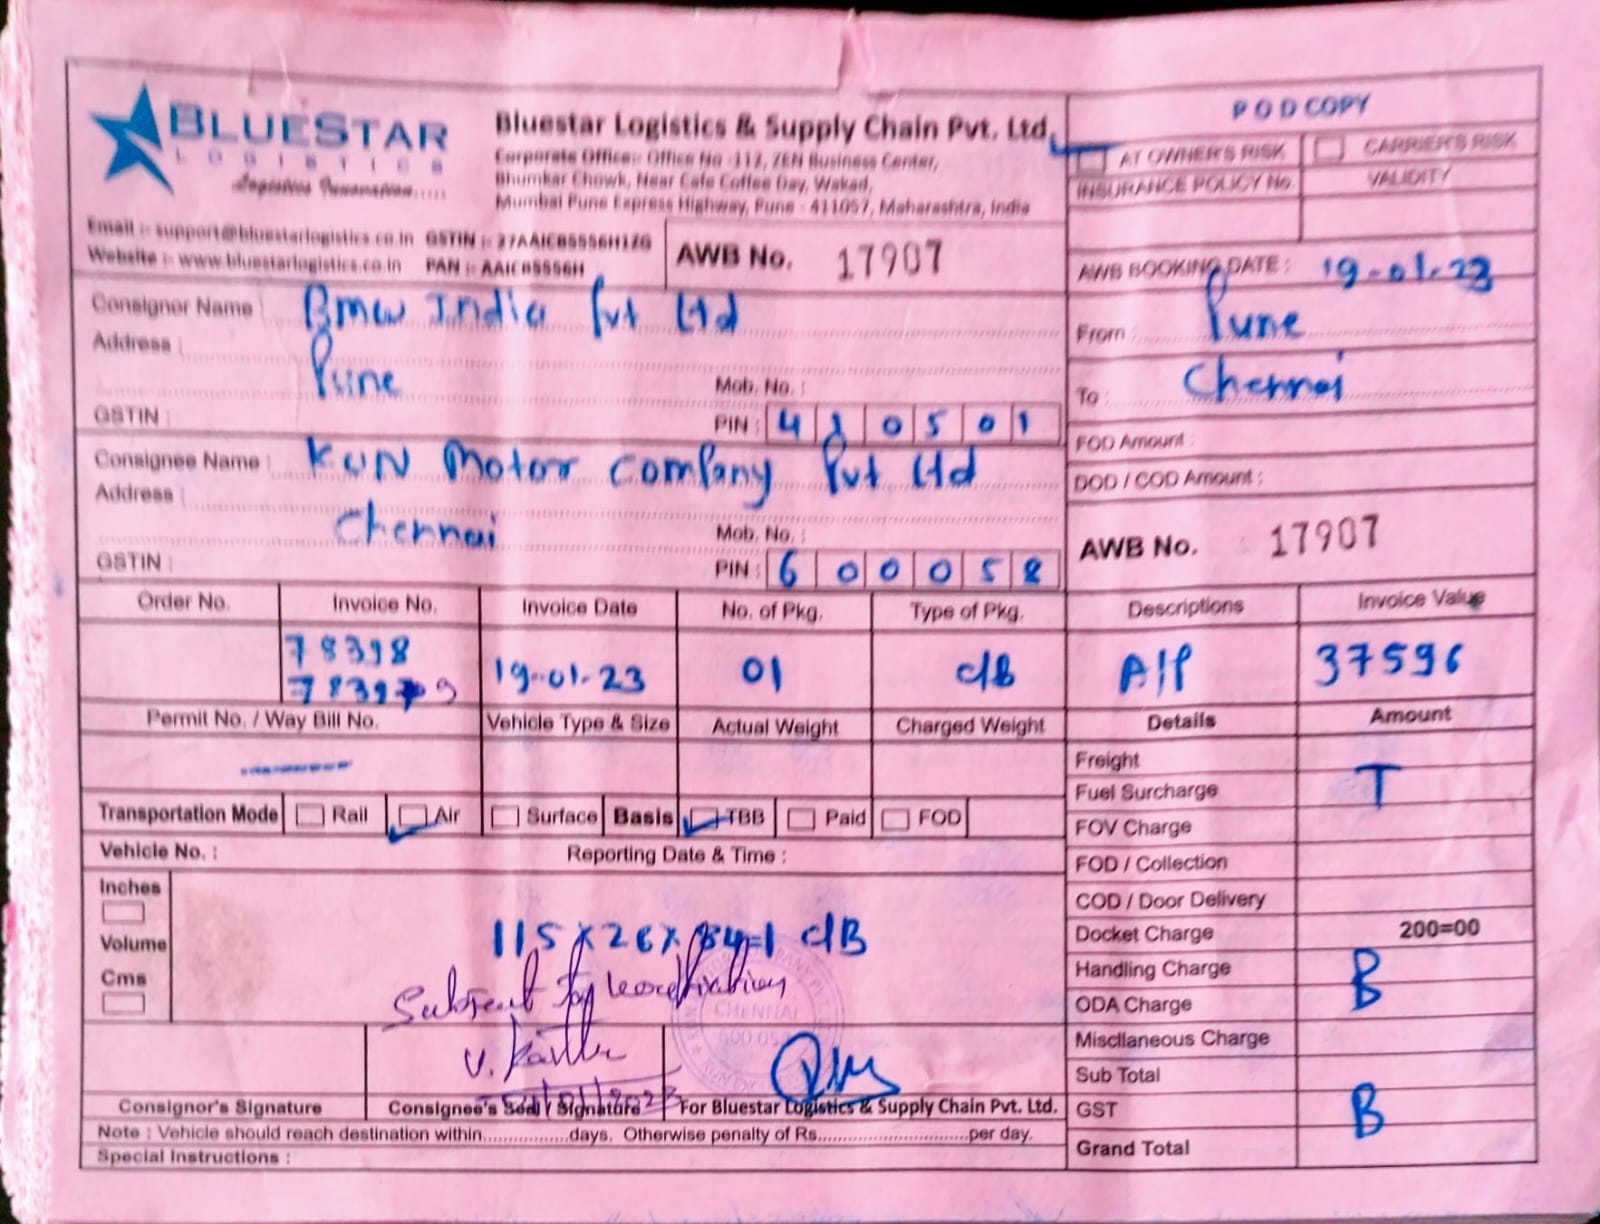 BLUESTAR
LOGISTICS
Logistics Innovation.....
Bluestar Logistics & Supply Chain Pvt. Ltd.
Corporate Office:- Office No -112, ZEN Business Center,
Bhumkar Chowk, Near Cafe Coffee Day, Wakad,
Mumbai Pune Express Highway, Pune - 411057, Maharashtra, India
Email :- support@bluestarlogistics.co.in GSTIN :- 27AAICB5556H1ZG
Website :- www.bluestarlogistics.co.in PAN :- AAICB5556H
AWB No. 17907
POD COPY
AT OWNER'S RISK CARRIER'S RISK
INSURANCE POLICY No. VALIDITY
AWB BOOKING DATE : 19-01-23
From : Pune
To : Chennai
FOD Amount :
DOD / COD Amount :
AWB No. : 17907
Consignor Name : Bmw India Pvt Ltd
Address :
Pune Mob. No. :
GSTIN : PIN : 410501
Consignee Name : KUN Motor Company Pvt Ltd
Address :
Chennai Mob. No. :
GSTIN : PIN : 600058
Order No. Invoice No. Invoice Date No. of Pkg. Type of Pkg. Descriptions Invoice Value
78398
78399 19-01-23 01 C/B A/P 37596
Permit No. / Way Bill No. Vehicle Type & Size Actual Weight Charged Weight Details Amount
Freight
Fuel Surcharge T
FOV Charge
FOD / Collection
COD / Door Delivery
Docket Charge 200=00
Handling Charge B
ODA Charge
Miscllaneous Charge
Sub Total
GST B
Grand Total
Transportation Mode Rail Air Surface Basis TBB Paid FOD
Vehicle No. : Reporting Date & Time :
Inches
Volume
Cms
115 x 26 x 84=1 C/B
Subject to verification
V.
CHENNAI
600 058
Consignor's Signature Consignee's Seal / Signature For Bluestar Logistics & Supply Chain Pvt. Ltd.
Note : Vehicle should reach destination within..................days. Otherwise penalty of Rs..............................per day.
Special Instructions :